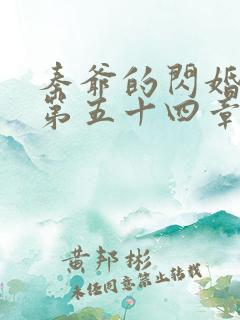 秦爺的閃婚
第五十四章
黄邦彬
未任同意禁止转载